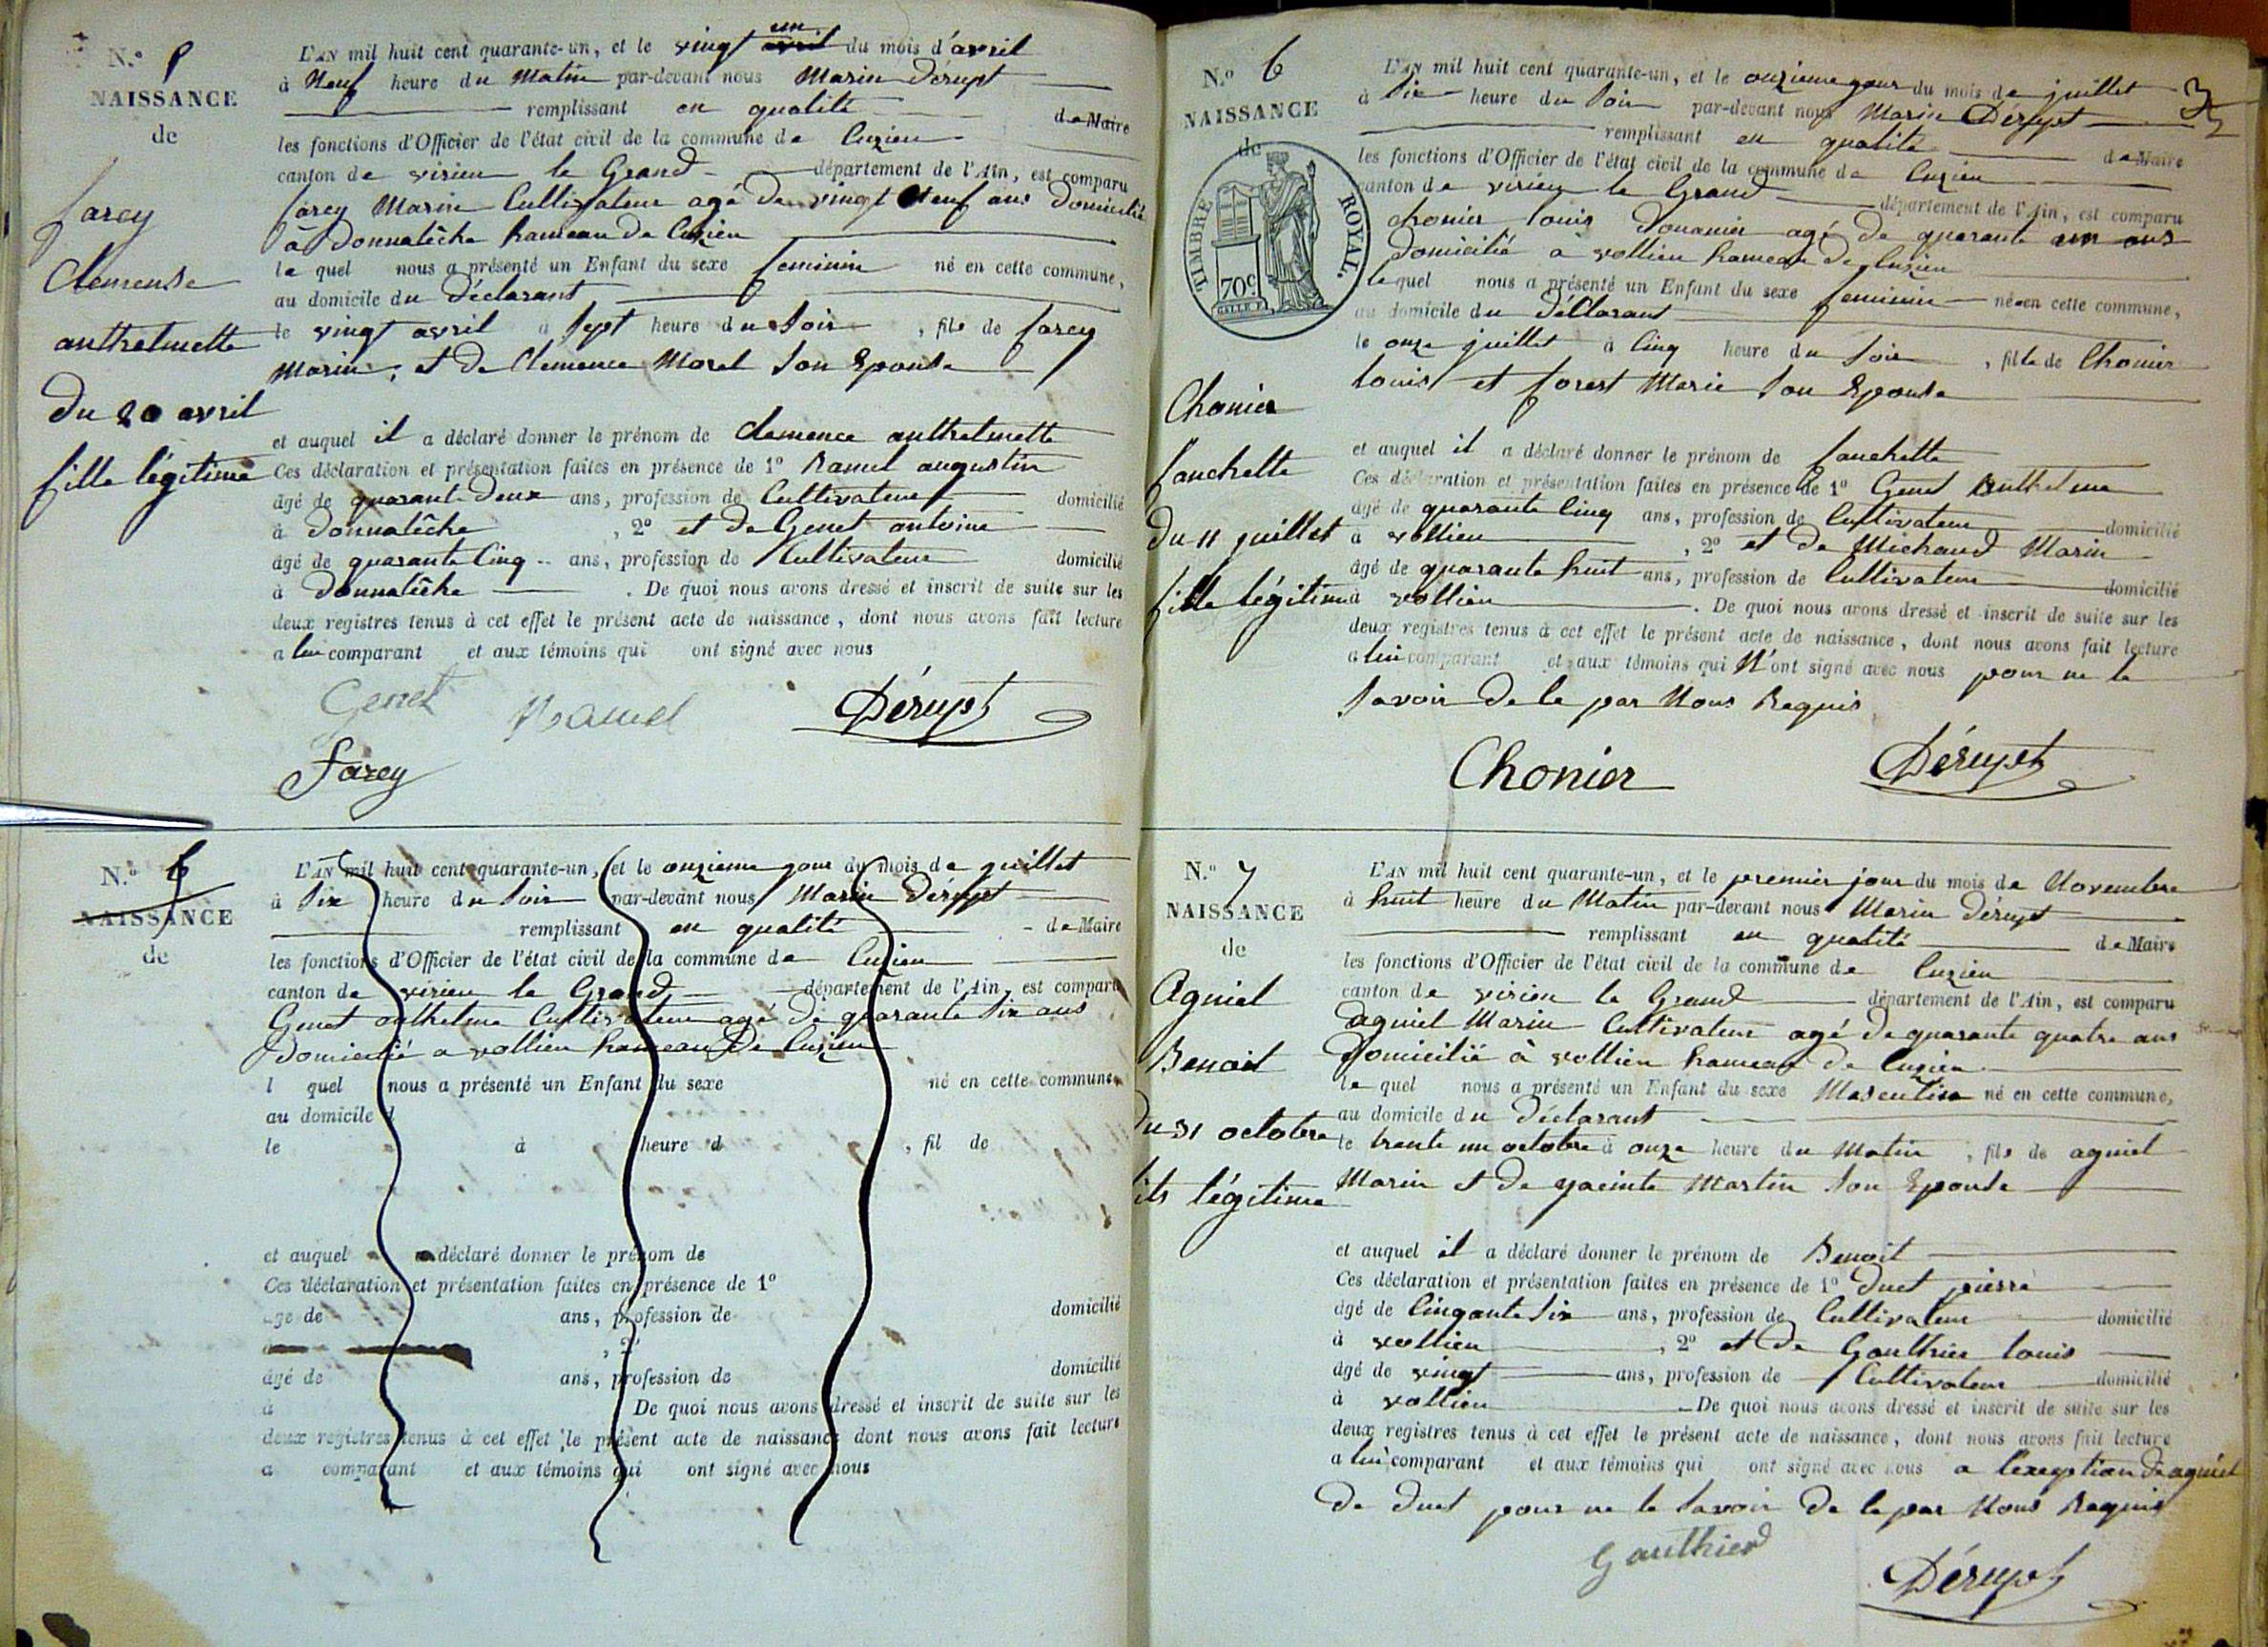 N.º 5
NAISSANCE
de
farcy
Clemense
anthelmette
Du 20 avril
fille légitime
L'AN mil huit cent quarante-un, et le vingt un avril du mois d'avril
à Neuf heure du Matin par-devant nous Marin Dérupt
remplissant en qualité de Maire
les fonctions d'Officier de l'état civil de la commune de Cuzieu
canton de virieu le Grand département de l'Ain, est comparu
farcy Marin Cultivateur agé de vingt Neuf ans Domicilié
à Donnatêche hameau de Cuzieu
le quel nous a présenté un Enfant du sexe feminin né en cette commune,
au domicile du Déclarant
le vingt avril à Sept heure du Soir, fils de farcy
Marin, et de Clemence Morel Son Epouse
et auquel il a déclaré donner le prénom de clemence anthelmette
Ces déclaration et présentation faites en présence de 1º Ramel augustin
âgé de quarante Deux ans, profession de Cultivateur domicilié
à Donnatêche, 2º et de Genet antoine
âgé de quarante Cinq ans, profession de Cultivateur domicilié
à Donnatêche. De quoi nous avons dressé et inscrit de suite sur les
deux registres tenus à cet effet le présent acte de naissance, dont nous avons fait lecture
a lui comparant et aux témoins qui ont signé avec nous
Genet Ramel Dérupt
Farcy
N.º 6
NAISSANCE
de
L'AN mil huit cent quarante-un, et le onzieme jour du mois de juillet
à Six heure du Soir par-devant nous Marin Dérupt
remplissant en qualité de Maire
les fonctions d'Officier de l'état civil de la commune de Cuzieu
canton de virieu le Grand département de l'Ain, est comparu
Genet anthelme Cultivateur agé de quarante Six ans
Domicilié a vollien hameau De Cuzieu
l quel nous a présenté un Enfant du sexe né en cette commune,
au domicile d
le à heure d, fil de
et auquel a déclaré donner le prénom de
Ces déclaration et présentation faites en présence de 1º
âge de ans, profession de domicilié
à, 2º
âgé de ans, profession de domicilié
à De quoi nous avons dressé et inscrit de suite sur les
deux registres tenus à cet effet le présent acte de naissance dont nous avons fait lecture
a comparant et aux témoins qui ont signé avec nous
N.º 6
NAISSANCE
de
TIMBRE ROYAL.
70c.
Chonier
fanchette
Du 11 juillet
fille légitime
3
L'AN mil huit cent quarante-un, et le onzieme jour du mois de juillet
à Six heure du Soir par-devant nous Marin Dérupt
remplissant en qualité de Maire
les fonctions d'Officier de l'état civil de la commune de Cuzieu
canton de virieu le Grand département de l'Ain, est comparu
chonier louis Douanier agé de quarante un ans
Domicilié a vollien hameau de Cuzieu
le quel nous a présenté un Enfant du sexe feminin né en cette commune,
au domicile du Déclarant
le onze juillet à Cinq heure du Soir, fille de Chonier
louis et forest Marie Son Epouse
et auquel il a déclaré donner le prénom de fanchette
Ces déclaration et présentation faites en présence de 1º Genet Anthelme
âgé de quarante Cinq ans, profession de Cultivateur domicilié
à vollien, 2º et de Michaud Marin
âgé de quarante huit ans, profession de Cultivateur domicilié
à vollien. De quoi nous avons dressé et inscrit de suite sur les
deux registres tenus à cet effet le présent acte de naissance, dont nous avons fait lecture
a lui comparant et aux témoins qui N'ont signé avec nous pour ne le
Savoir De le par Nous Requis
Chonier Dérupt
N.º 7
NAISSANCE
de
Agniel
Benoit
Du 31 octobre
fils légitime
L'AN mil huit cent quarante-un, et le premier jour du mois de Novembre
à huit heure du Matin par-devant nous Marin Dérupt
remplissant en qualité de Maire
les fonctions d'Officier de l'état civil de la commune de Cuzieu
canton de virieu le Grand département de l'Ain, est comparu
agniel Marin Cultivateur agé de quarante quatre ans
Domicilié à vollien hameau de Cuzieu
le quel nous a présenté un Enfant du sexe Masculin né en cette commune,
au domicile du Déclarant
le trente un octobre à onze heure du Matin, fils de agniel
Marin et de yacinte Martin Son Epouse
et auquel il a déclaré donner le prénom de Benoit
Ces déclaration et présentation faites en présence de 1º Duet pierre
âgé de Cinqante Six ans, profession de Cultivateur domicilié
à vollien, 2º et de Gauthier louis
âgé de vingt ans, profession de Cultivateur domicilié
à vollien De quoi nous avons dressé et inscrit de suite sur les
deux registres tenus à cet effet le présent acte de naissance, dont nous avons fait lecture
a lui comparant et aux témoins qui ont signé avec nous a l'exeption de agniel
de Duet pour ne le Savoir De le par Nous Requis
Gauthier
Dérupt